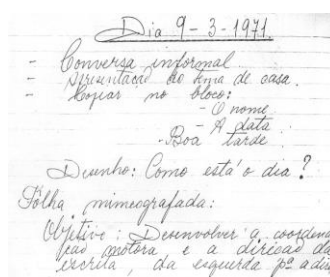 Dia 9-3-1971.
- Conversa informal
- Apresentação do tema de casa.
- Copiar no bloco:
- O nome
- A data
- Boa tarde
Desenho: Como está o dia?
Fôlha mimeografada:
Objetivo: Desenvolver a coordena
ção motora e a direção da
escrita, da esquerda pª a di